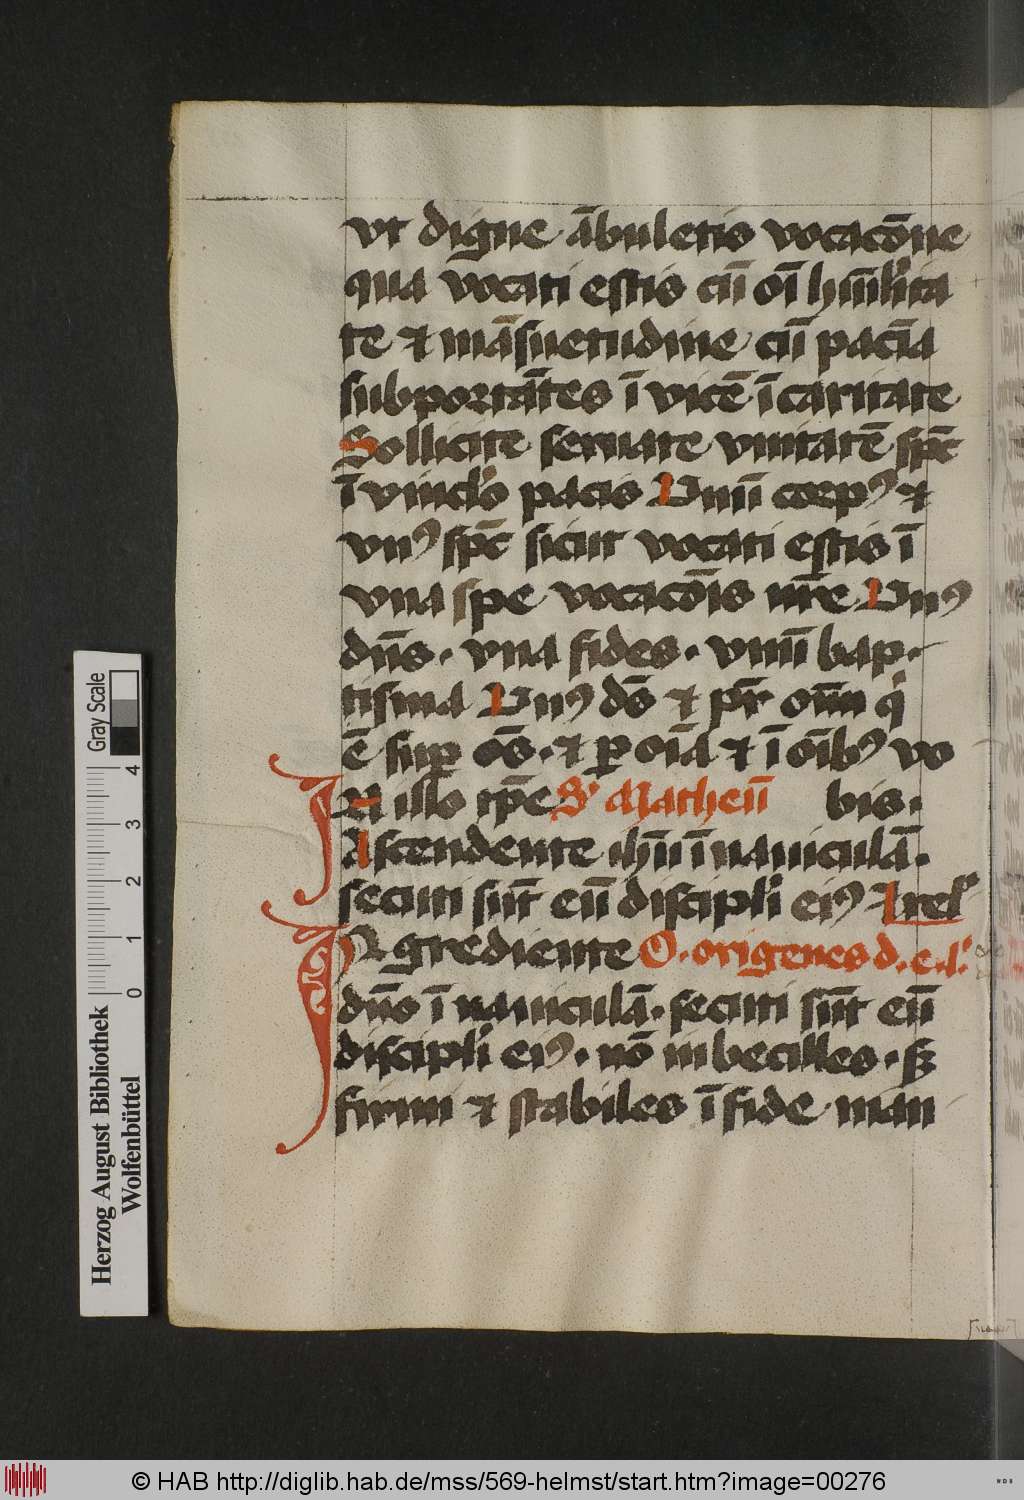 vt digne ābuletis vocacōne
qua vocati estis cū oī hūīlita
te ⁊ māsuetudine cū paciā
subportātes ī vicē ī caritate
Sollicite seruate vnitatē spc̄
ī vinclo pacis Vnū corpꝰ ⁊
vnꝰ spc̄ sicut vocati estis ī
vna spe vocacōis nr̄e Vnꝰ
dn̄s · vna fides · vnū bap·
tisma Vnꝰ ds̄ ⁊ pr̄ oīm qͥ
ē suꝑ oē̄s · ⁊ ꝑ oīa ⁊ ī oībꝰ vo
IN illo tp̄e Sͫ Matheū bis ·
Ascendente ihū ī nauiculā ·
secuti sūt eū discipli eiꝰ ⁊ rel
INgrediente O · origenes d · e · l ·
dn̄o ī nauiculā · secuti sūt eū
discipli eiꝰ · nō inbecilles · sꝫ
firmi ⁊ stabiles ī fide man
Gray Scale
4
3
2
1
0
Herzog August Bibliothek
Wolfenbüttel
© HAB http://diglib.hab.de/mss/569-helmst/start.htm?image=00276